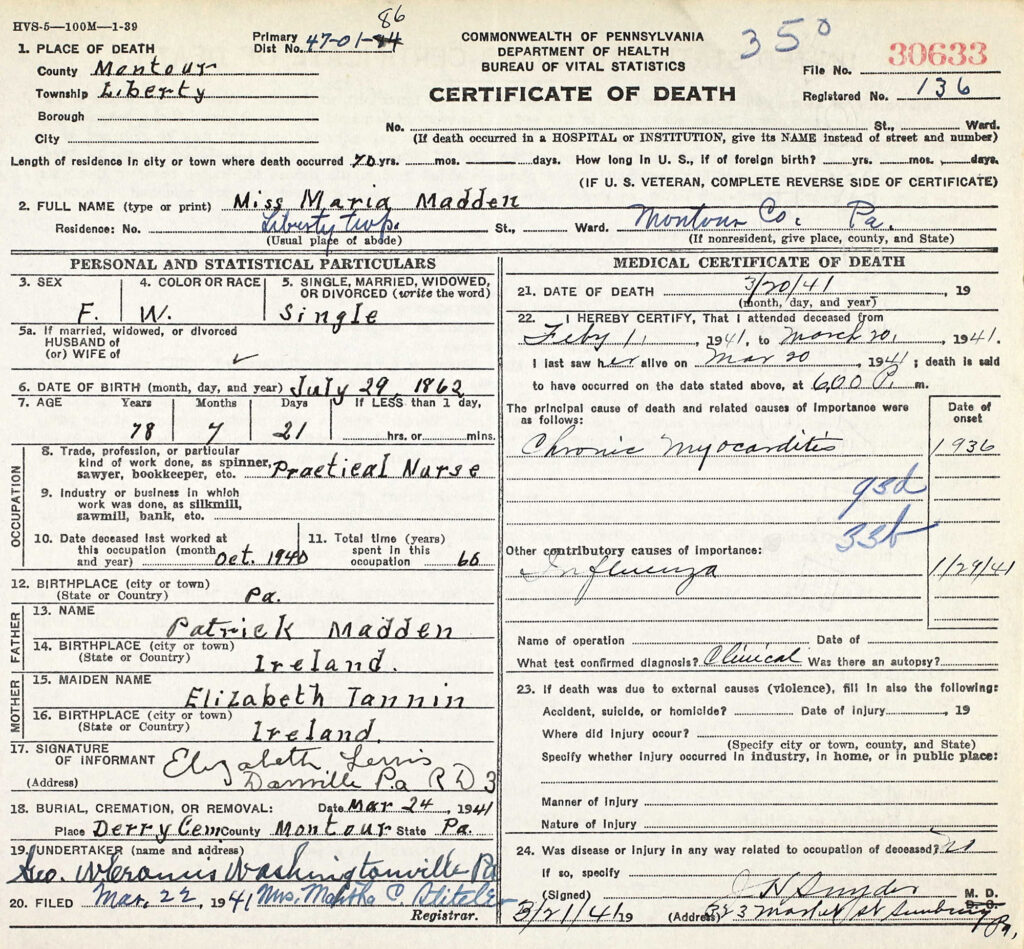 HVS-5—100M—1-39
Primary Dist No. 47-01-84 86
COMMONWEALTH OF PENNSYLVANIA
DEPARTMENT OF HEALTH
BUREAU OF VITAL STATISTICS
350
File No. 30633
CERTIFICATE OF DEATH
Registered No. 136
1. PLACE OF DEATH
County Montour
Township Liberty
Borough
City
No. St., Ward.
(If death occurred in a HOSPITAL or INSTITUTION, give its NAME instead of street and number)
Length of residence in city or town where death occurred 70 yrs. mos. days. How long in U. S., if of foreign birth? yrs. mos. days.
(IF U. S. VETERAN, COMPLETE REVERSE SIDE OF CERTIFICATE)
2. FULL NAME (type or print) Miss Maria Madden
Residence: No. Liberty twp. St., Ward. Montour Co. Pa.
(Usual place of abode) (If nonresident, give place, county, and State)
PERSONAL AND STATISTICAL PARTICULARS
3. SEX
F.
4. COLOR OR RACE
W.
5. SINGLE, MARRIED, WIDOWED,
OR DIVORCED (write the word)
Single
5a. If married, widowed, or divorced
HUSBAND of
(or) WIFE of ✓
6. DATE OF BIRTH (month, day, and year) July 29, 1862
7. AGE Years Months Days If LESS than 1 day,
78 7 21 hrs. or mins.
OCCUPATION
8. Trade, profession, or particular
kind of work done, as spinner,
sawyer, bookkeeper, etc. Practical Nurse
9. Industry or business in which
work was done, as silkmill,
sawmill, bank, etc.
10. Date deceased last worked at
this occupation (month
and year) Oct. 1940
11. Total time (years)
spent in this
occupation 60
12. BIRTHPLACE (city or town)
(State or Country) Pa.
FATHER
13. NAME
Patrick Madden
14. BIRTHPLACE (city or town)
(State or Country) Ireland.
MOTHER
15. MAIDEN NAME
Elizabeth Tannin
16. BIRTHPLACE (city or town)
(State or Country) Ireland.
17. SIGNATURE
OF INFORMANT Elizabeth Lewis
(Address) Danville Pa R D 3
18. BURIAL, CREMATION, OR REMOVAL: Date Mar 24, 1941
Place Derry Cem County Montour State Pa.
19. UNDERTAKER (name and address)
Geo. Washingtonville Pa
20. FILED Mar. 22, 1941 Mrs. C.
Registrar.
MEDICAL CERTIFICATE OF DEATH
21. DATE OF DEATH 3/20/41, 19
(month, day, and year)
22. I HEREBY CERTIFY, That I attended deceased from
Feby 1, 1941, to March 20, 1941.
I last saw her alive on Mar 20, 1941; death is said
to have occurred on the date stated above, at 6.00 P. m.
The principal cause of death and related causes of importance were
as follows:
Date of
onset
Chronic Myocarditis 1936
93d
33b
Other contributory causes of importance:
Influenza 1/29/41
Name of operation Date of
What test confirmed diagnosis? Clinical Was there an autopsy?
23. If death was due to external causes (violence), fill in also the following:
Accident, suicide, or homicide? Date of injury, 19
Where did injury occur?
(Specify city or town, county, and State)
Specify whether injury occurred in industry, in home, or in public place:
Manner of injury
Nature of injury
24. Was disease or injury in any way related to occupation of deceased? no
If so, specify
(Signed) Snyder M. D.
D. O.
3/21/41 19 (Address) 323 Market St Sunbury Pa.